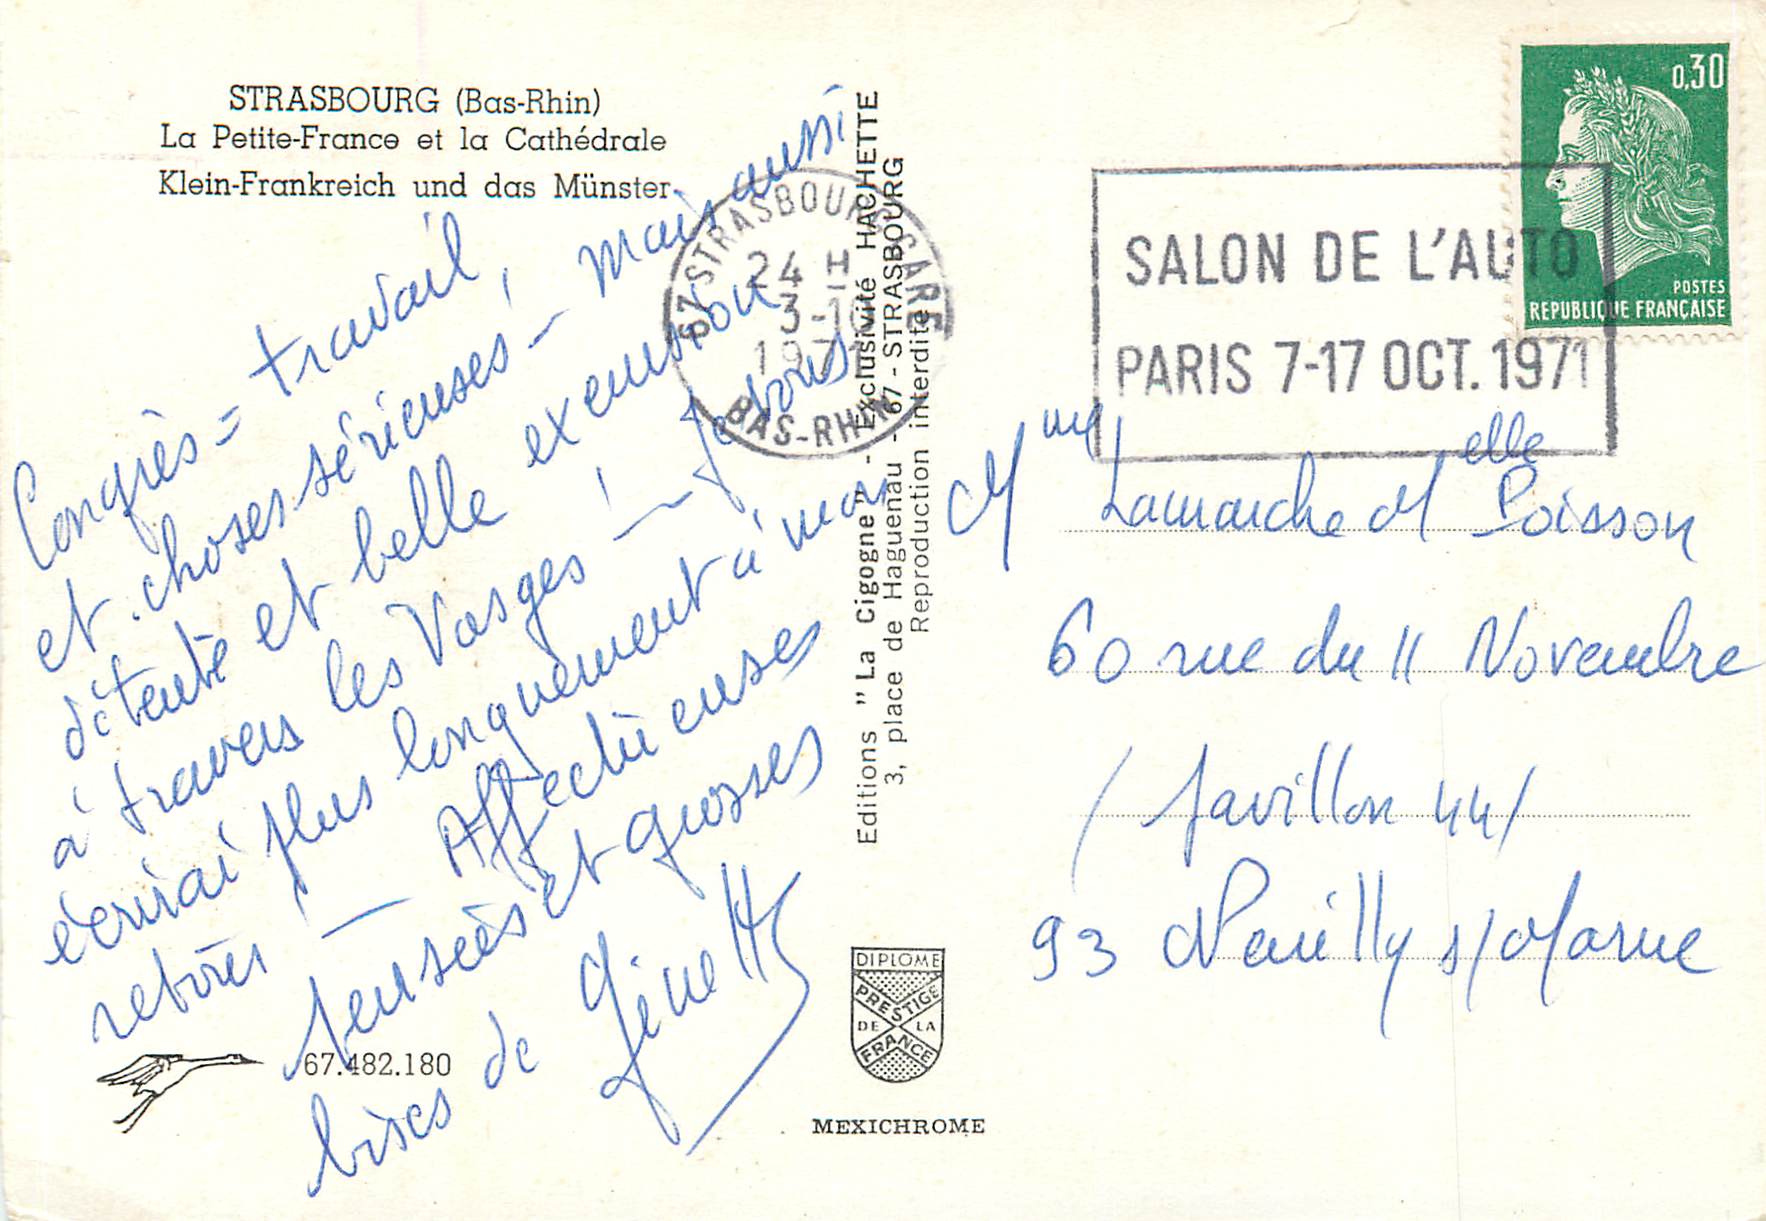 STRASBOURG (Bas-Rhin)
La Petite-France et la Cathédrale
Klein-Frankreich und das Münster
Congrès = travail,
et choses sérieuses ! - mais aussi
détente et belle excursion
à travers les Vosges ! - Je vous
écrirai plus longuement à mon
retour ! - Affectueuses
pensées et grosses
bises de Ginette
67.482.180
Editions "La Cigogne" - Exclusivité HACHETTE
3, place de Haguenau - 67 - STRASBOURG
Reproduction interdite
67 STRASBOURG GARE
24 H
3-10
1971
BAS-RHIN
SALON DE L'AUTO
PARIS 7-17 OCT. 1971
0,30
POSTES
REPUBLIQUE FRANÇAISE
Mme Lamarche M elle Poisson
60 rue du 11 Novembre
(pavillon 44)
93 Neuilly s/Marne
DIPLOME
PRESTIGE
DE LA
FRANCE
MEXICHROME